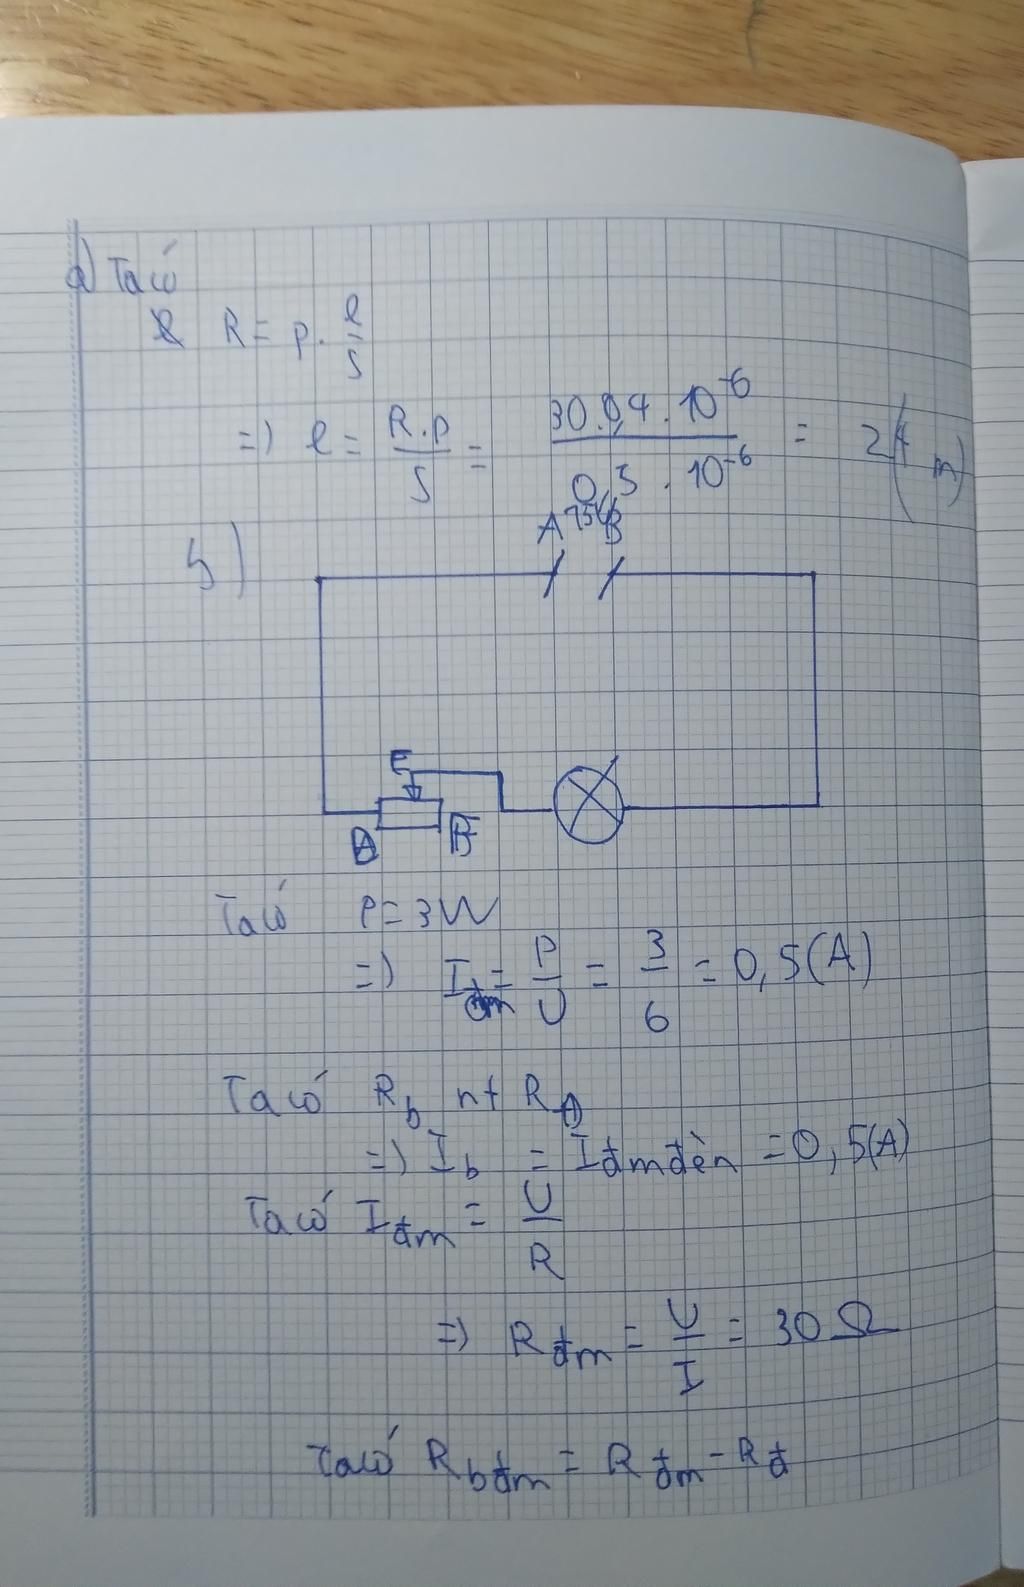 a) Ta có
R = p. l/S
=) l = R.p/S = 30.0,4.10^-6/0,5.10^-6 = 24(m)
b)
A 15V B
E
A B
Ta có P = 3W
=) Iđm = P/U = 3/6 = 0,5(A)
Ta có Rb nt RĐ
=) Ib = Iđmđèn = 0,5(A)
Ta có Iđm = U/R
=) Rđm = U/I = 30Ω
Ta có Rbđm = Rđm - Rđ